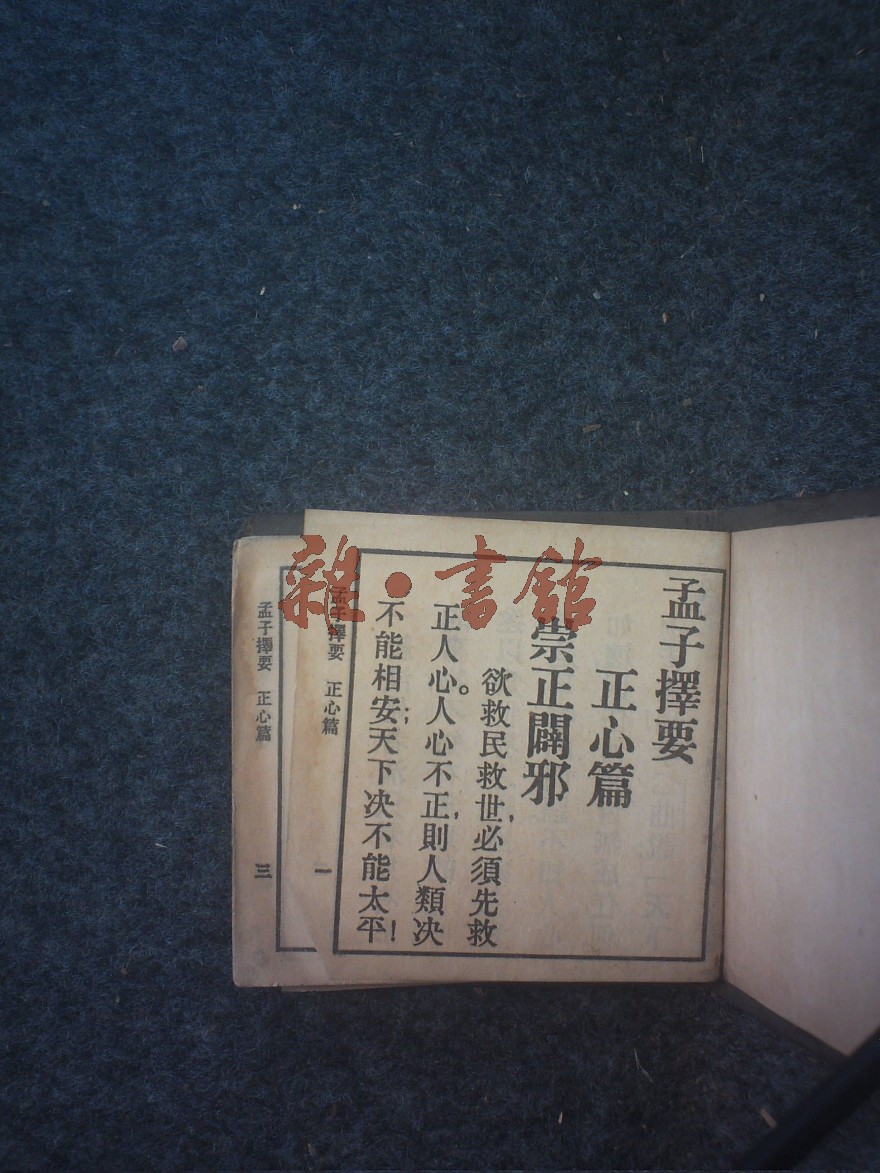 孟子擇要
正心篇
崇正闢邪
欲救民救世，必須先救
正人心。人心不正，則人類決
不能相安；天下決不能太平！
孟子擇要　正心篇　一
孟子擇要　正心篇　三
雜·書館